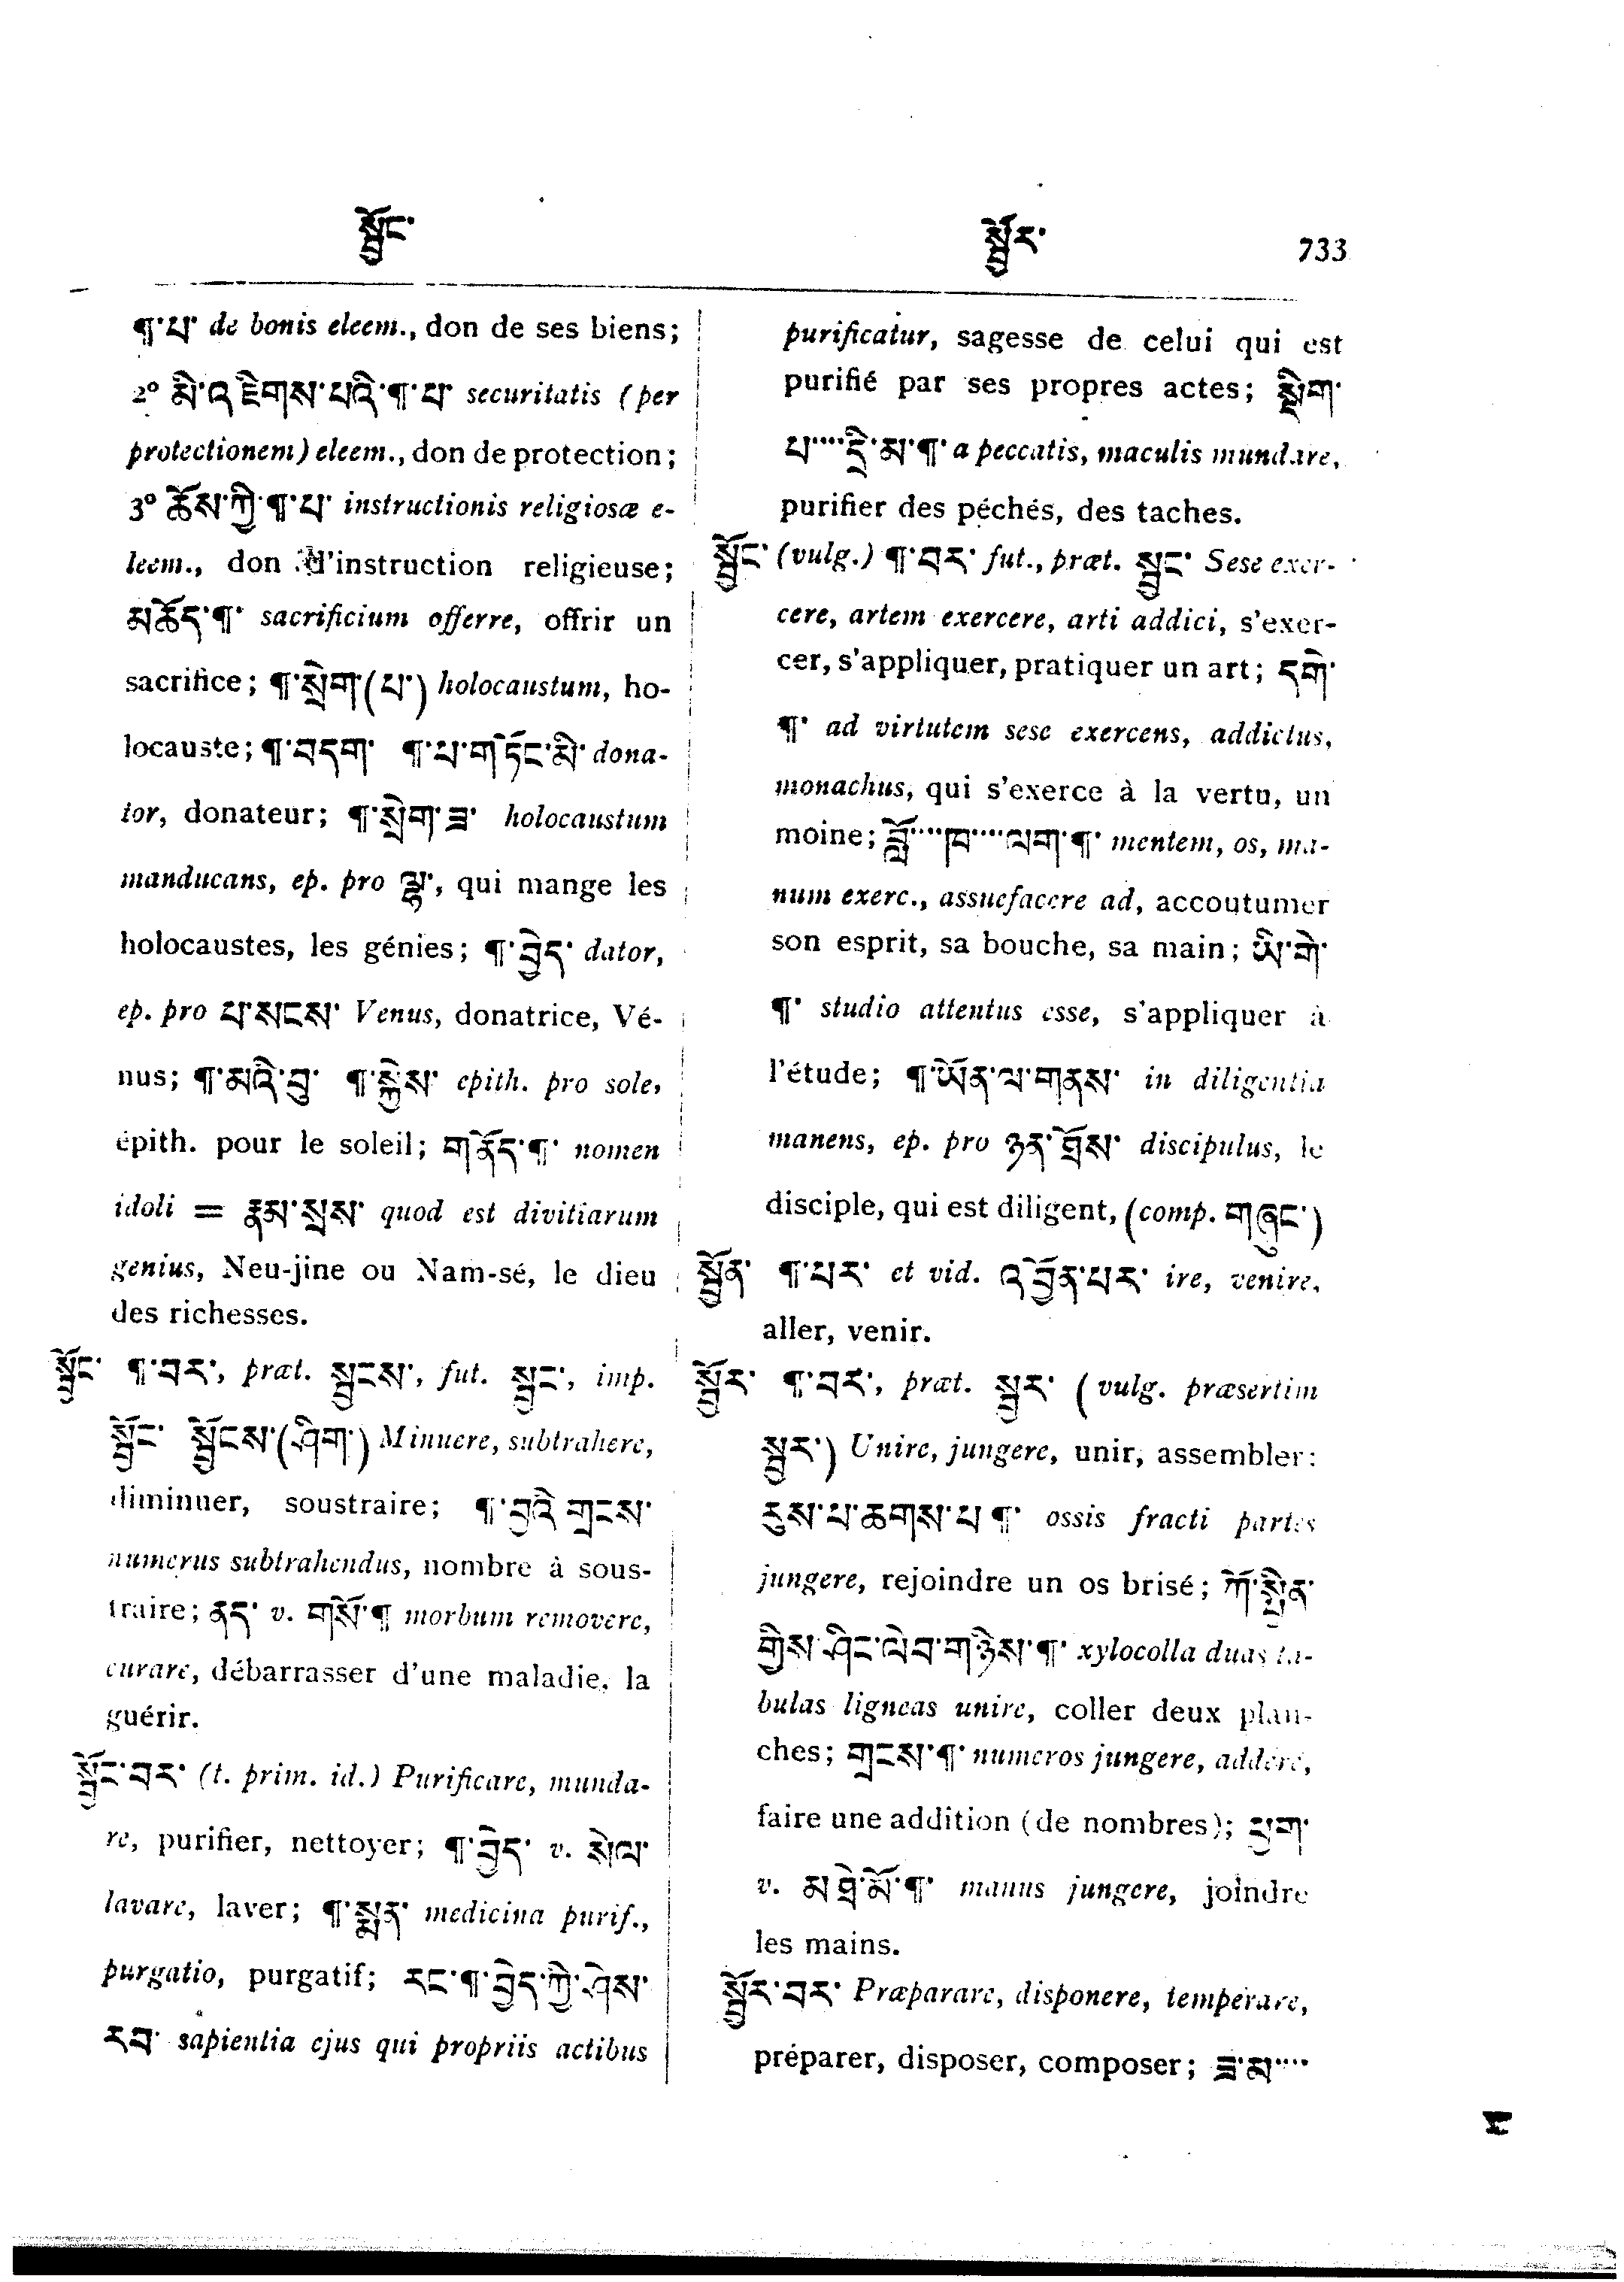 སྦྱོང་ སྦྱོར་ 733
¶་པ་ de bonis eleem., don de ses biens;
2° མི་འཇིགས་པའི་¶་པ་ securitatis (per
protectionem) eleem., don de protection;
3° ཆོས་ཀྱི་¶་པ་ instructionis religiosæ e-
leem., don d'instruction religieuse;
མཆོད་¶་ sacrificium offerre, offrir un
sacrifice; ¶་སྲེག་(པ་) holocaustum, ho-
locauste; ¶་བདག་ ¶་པ་གཏོང་མི་ dona-
tor, donateur; ¶་སྲེག་ཟ་ holocaustum
manducans, ep. pro ལྷ་, qui mange les
holocaustes, les génies; ¶་བྱེད་ dator,
ep. pro པ་སངས་ Venus, donatrice, Vé-
nus; ¶་མའི་བུ་ ¶་སྐྱེས་ epith. pro sole,
épith. pour le soleil; གནོད་¶་ nomen
idoli = རྣམ་སྲས་ quod est divitiarum
genius, Neu-jine ou Nam-sé, le dieu
des richesses.
སྦྱོང་ ¶་བར་, præt. སྦྱངས་, fut. སྦྱང་, imp.
སྦྱོང་ སྦྱོངས་(ཤིག་) Minuere, subtrahere,
diminuer, soustraire; ¶་བྱའི་གྲངས་
numerus subtrahendus, nombre à sous-
traire; ནད་ v. གསོ་¶ morbum removere,
curare, débarrasser d'une maladie, la
guérir.
སྦྱོང་བར་ (t. prim. id.) Purificare, munda-
re, purifier, nettoyer; ¶་བྱེད་ v. སེལ་
lavare, laver; ¶་སྨན་ medicina purif.,
purgatio, purgatif; རང་¶་བྱེད་ཀྱི་ཤེས་
རབ་ sapientia ejus qui propriis actibus
purificatur, sagesse de celui qui est
purifié par ses propres actes; སྡིག་
པ་…་དྲི་མ་¶་ a peccatis, maculis mundare,
purifier des péchés, des taches.
སྦྱོང་ (vulg.) ¶་བར་ fut., præt. སྦྱང་ Sese exer-
cere, artem exercere, arti addici, s'exer-
cer, s'appliquer, pratiquer un art; དགེ་
¶་ ad virtutem sese exercens, addictus,
monachus, qui s'exerce à la vertu, un
moine; བློ་…་ཁ་…་ལག་¶་ mentem, os, ma-
num exerc., assuefacere ad, accoutumer
son esprit, sa bouche, sa main; ཡི་གེ་
¶་ studio attentus esse, s'appliquer à
l'étude; ¶་ཡོན་ལ་གནས་ in diligentia
manens, ep. pro ཉན་ཐོས་ discipulus, le
disciple, qui est diligent, (comp. གཞུང་)
སྦྱོན་ ¶་པར་ et vid. འབྱོན་པར་ ire, venire,
aller, venir.
སྦྱོར་ ¶་བར་, præt. སྦྱར་ (vulg. præsertim
སྦྱར་) Unire, jungere, unir, assembler:
རུས་པ་ཆགས་པ¶་ ossis fracti partes
jungere, rejoindre un os brisé; ཀོ་སྤྲིན་
གྱིས་ཤིང་ལེབ་གཉིས་¶་ xylocolla duas ta-
bulas ligneas unire, coller deux plan-
ches; གྲངས་¶་ numeros jungere, addere,
faire une addition (de nombres); ཕྱག་
v. མཐེ་མོ་¶་ manus jungere, joindre
les mains.
སྦྱོར་བར་ Præparare, disponere, temperare,
préparer, disposer, composer; ཟ་མ་…